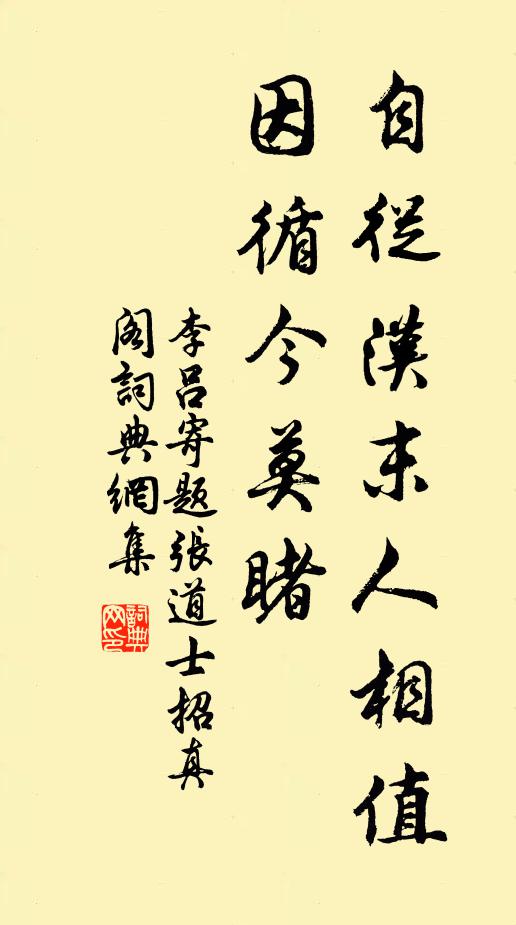 自從漢末人相值
因循今莫睹
李呂寄題張道士招真
閣詞典網集
詞典
网印